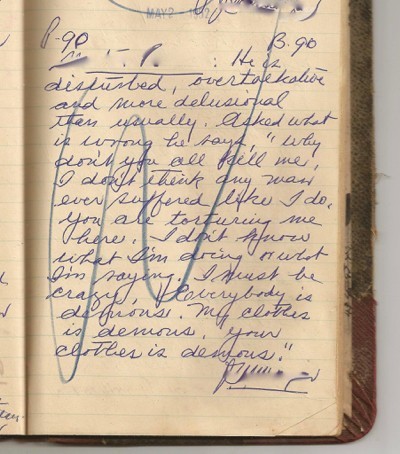 MAY 2 - 1912
P-90 B-90
He is
disturbed, overtalkative
and more delusional
then usually. Asked what
is wrong he says, "Why
don't you all kill me,
I don't think any man
ever suffered like I do.
you are torturing me
here. I don't know
what I'm doing or what
I'm saying. I must be
crazy, Everybody is
demons. My clothes
is demons, your
clothes is demons."